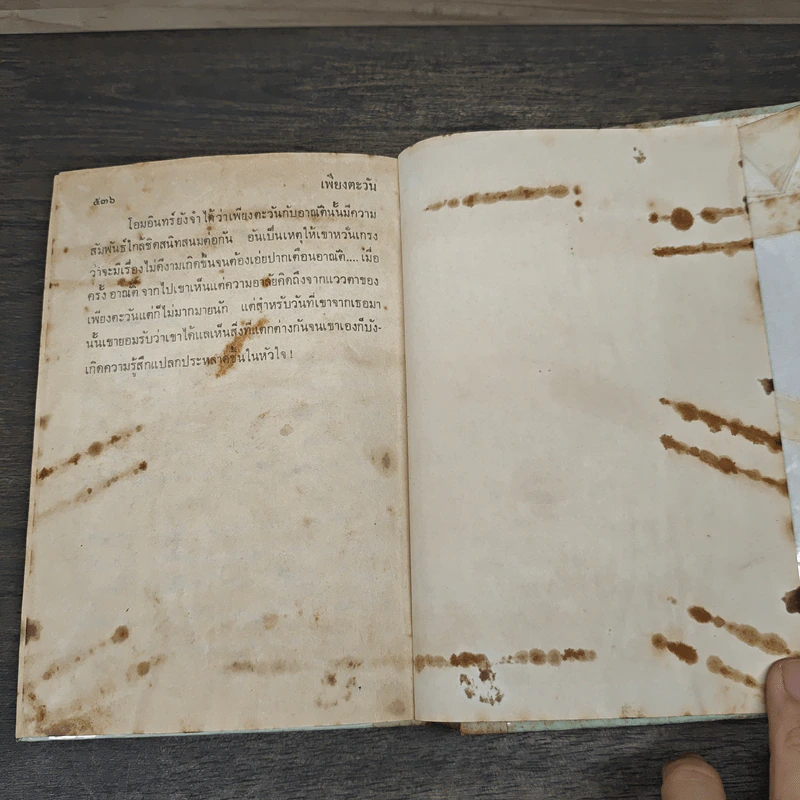 เพียงตะวัน
๕๓๖
โอมอินทร์ยังจำได้ว่าเพียงตะวันกับอาณัตินั้นมีความ
สัมพันธ์ใกล้ชิดสนิทสนมต่อกัน อันเป็นเหตุให้เขาหวั่นเกรง
ว่าจะมีเรื่องไม่ดีงามเกิดขึ้นจนต้องเอ่ยปากเตือนอาณัติ.... เมื่อ
ครั้งอาณัติ จากไปเขาเห็นแต่ความอาลัยคิดถึงจากแววตาของ
เพียงตะวันแต่ก็ไม่มากมายนัก แต่สำหรับวันที่เขาจากเธอมา
นั้นเขายอมรับว่าเขาได้แลเห็นสิ่งที่แตกต่างกันจนเขาเองก็บัง-
เกิดความรู้สึกแปลกประหลาดขึ้นในหัวใจ !